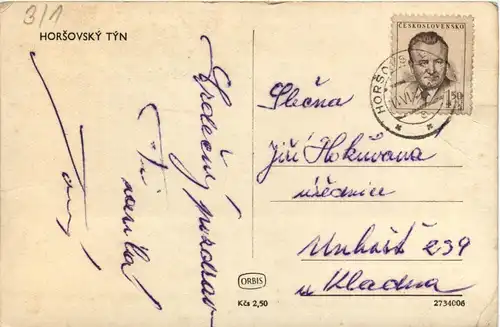 3/1
HORŠOVSKÝ TÝN
Srdečný pozdrav
ČESKOSLOVENSKO
1,50
HORŠOV
Slečna
Jiří
úřednice
Unhošť 239
u Kladna
ORBIS
Kčs 2,50
2734006